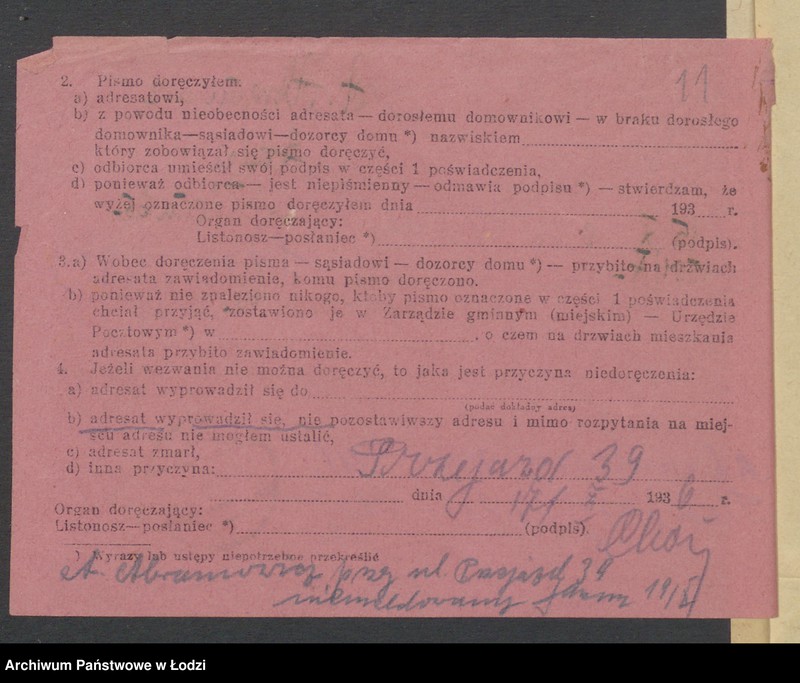 11
2. Pismo doręczyłem:
a) adresatowi,
b) z powodu nieobecności adresata — dorosłemu domownikowi — w braku dorosłego
domownika—sąsiadowi—dozorcy domu *) nazwiskiem
który zobowiązał się pismo doręczyć,
c) odbiorca umieścił swój podpis w części 1 poświadczenia,
d) ponieważ odbiorca — jest niepiśmienny — odmawia podpisu *) — stwierdzam, że
wyżej oznaczone pismo doręczyłem dnia 193 r.
Organ doręczający:
Listonosz—posłaniec *) (podpis).
3. a) Wobec doręczenia pisma — sąsiadowi — dozorcy domu *) — przybito na drzwiach
adresata zawiadomienie, komu pismo doręczono.
b) ponieważ nie znaleziono nikogo, ktoby pismo oznaczone w części 1 poświadczenia
chciał przyjąć, zostawiono je w Zarządzie gminnym (miejskim) — Urzędzie
Pocztowym *) w , o czem na drzwiach mieszkania
adresata przybito zawiadomienie.
4. Jeżeli wezwania nie można doręczyć, to jaka jest przyczyna niedoręczenia:
a) adresat wyprowadził się do
(podać dokładny adres)
b) adresat wyprowadził się, nie pozostawiwszy adresu i mimo rozpytania na miej-
scu adresu nie mogłem ustalić,
c) adresat zmarł,
d) inna przyczyna: Przejazd 39
dnia 17/X 1936 r.
Organ doręczający:
Listonosz—posłaniec *) (podpis).
*) Wyrazy lub ustępy niepotrzebne przekreślić
A. Abramowicz przy ul. Przejazd 39
niemeldowany
Archiwum Państwowe w Łodzi